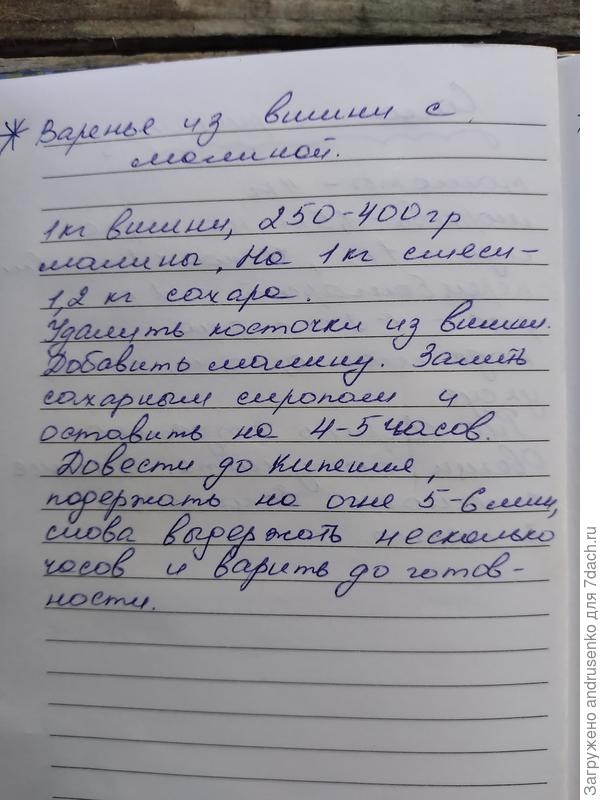 * Варенье из вишни с
малиной.
1 кг вишни, 250-400 гр
малины. На 1 кг смеси -
1,2 кг сахара.
Удалить косточки из вишни.
Добавить малину. Залить
сахарным сиропом и
оставить на 4-5 часов.
Довести до кипения,
подержать на огне 5-6 мин,
снова выдержать несколько
часов и варить до готов-
ности.
Загружено andrusenko для 7dach.ru